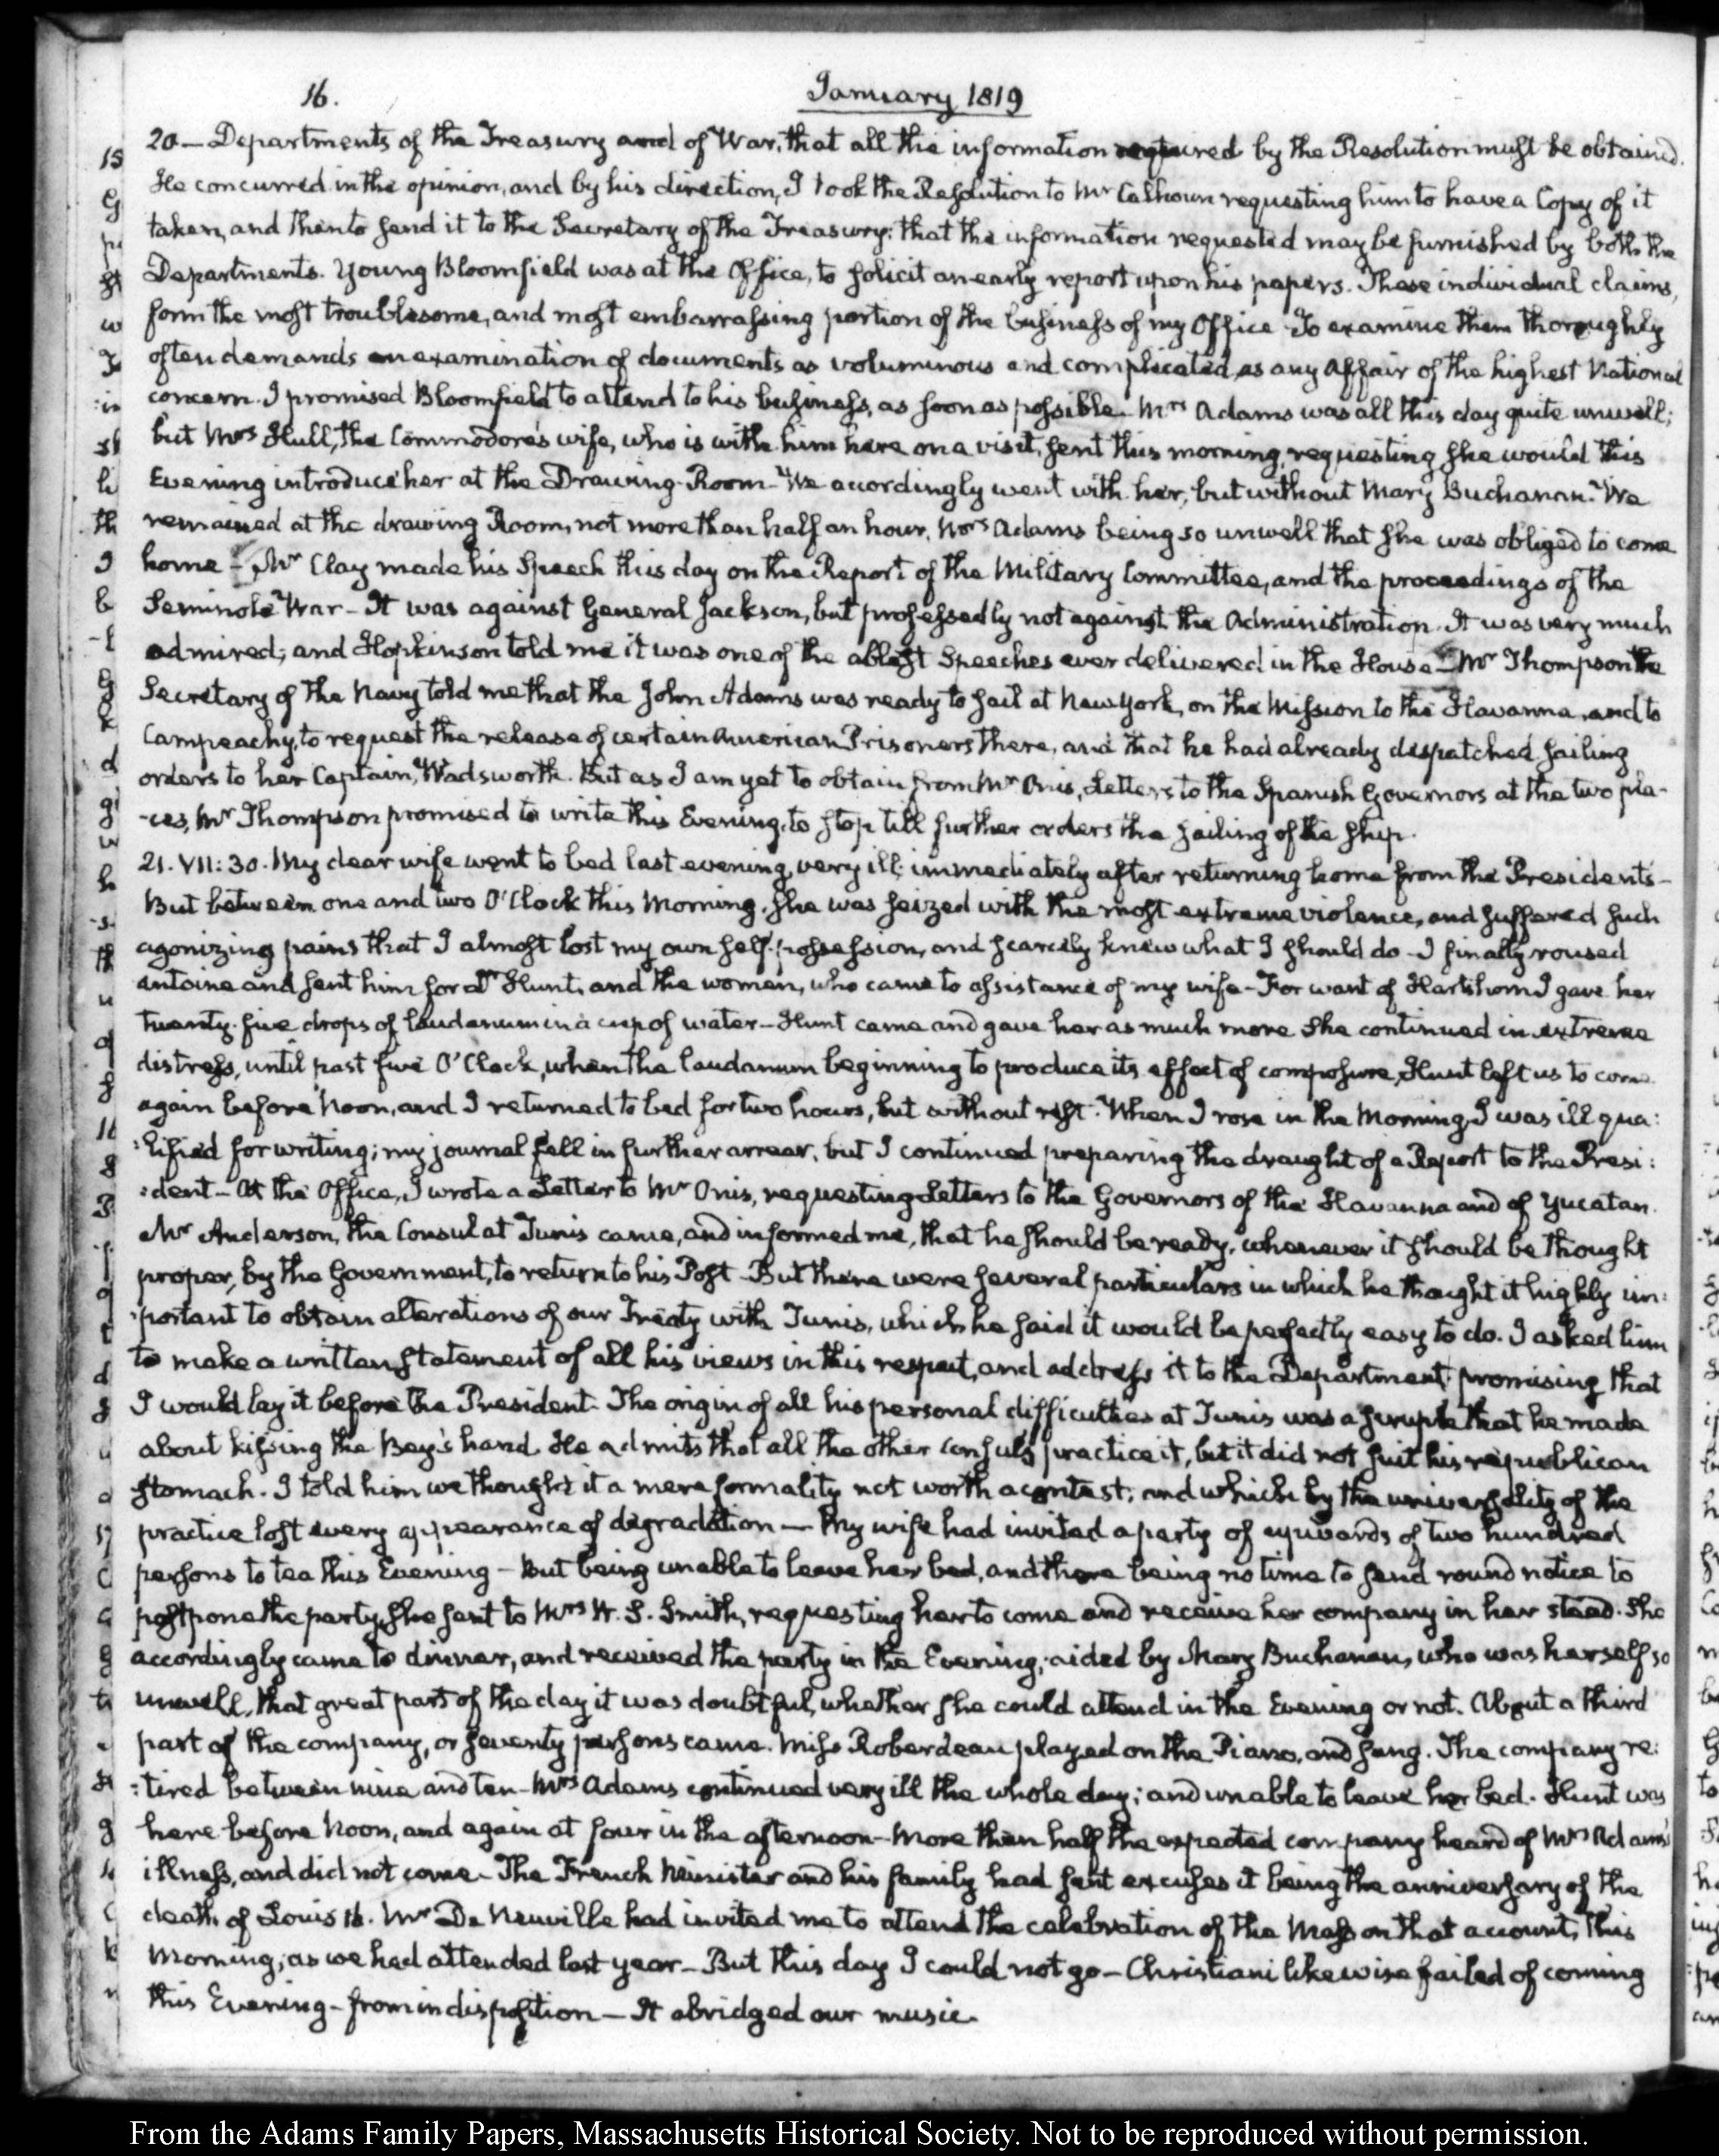 16.
January 1819
20 — Departments of the Treasury and of War, that all the information required by the Resolution must be obtained.
He concurred in the opinion, and by his direction, I took the Resolution to Mr Calhoun requesting him to have a Copy of it
taken, and then to send it to the Secretary of the Treasury: that the information requested may be furnished by both the
Departments. Young Bloomfield was at the Office, to solicit an early report upon his papers. These individual claims,
form the most troublesome, and most embarrassing portion of the business of my Office. To examine them thoroughly
often demands an examination of documents as voluminous and complicated, as any Affair of the highest National
concern. I promised Bloomfield to attend to his business, as soon as possible. Mrs Adams was all this day quite unwell;
but Mrs Hull, the Commodore's wife, who is with him here on a visit, sent this morning, requesting she would this
Evening introduce her at the Drawing-Room — We accordingly went with her, but without Mary Buchanan. We
remained at the drawing Room, not more than half an hour, Mrs Adams being so unwell that she was obliged to come
home — Mr Clay made his Speech this day on the Report of the Military Committee, and the proceedings of the
Seminole War — It was against General Jackson, but professedly not against the Administration. It was very much
admired; and Hopkinson told me it was one of the ablest Speeches ever delivered in the House — Mr Thompson the
Secretary of the Navy told me that the John Adams was ready to sail at New York, on the Mission to the Havanna, and to
Campeachy, to request the release of certain American Prisoners there, and that he had already despatched sailing
orders to her Captain, Wadsworth. But as I am yet to obtain from Mr Onis, Letters to the Spanish Governors at the two pla-
-ces, Mr Thompson promised to write this Evening, to stop till further orders the sailing of the ship.
21. VII: 30. My dear wife went to bed last evening, very ill, immediately after returning home from the Presidents —
But between one and two O'Clock this Morning, she was seized with the most extreme violence, and suffered such
agonizing pains that I almost lost my own self-possession, and scarcely knew what I should do — I finally roused
Antoine and sent him for Dr Hunt, and the women, who came to assistance of my wife — For want of Hartshorn I gave her
twenty-five drops of laudanum in a cup of water — Hunt came and gave her as much more. She continued in extreme
distress, until past five O'Clock, when the laudanum beginning to produce its effect of composure, Hunt left us to come
again before Noon, and I returned to bed for two hours, but without rest. When I rose in the Morning, I was ill qua:
:lified for writing; my journal fell in further arrear, but I continued preparing the draught of a Report to the Presi:
:dent — At the Office, I wrote a Letter to Mr Onis, requesting Letters to the Governors of the Havanna and of Yucatan.
Mr Anderson, the Consul at Tunis came, and informed me, that he should be ready, whenever it should be thought
proper, by the Government, to return to his Post — But there were several particulars in which he thought it highly im:
:portant to obtain alterations of our Treaty with Tunis, which he said it would be perfectly easy to do. I asked him
to make a written statement of all his views in this respect, and address it to the Department; promising that
I would lay it before the President. The origin of all his personal difficulties at Tunis was a scruple that he made
about kissing the Bey's hand. He admits that all the other Consuls practice it, but it did not suit his republican
stomach. I told him we thought it a mere formality not worth a contest; and which by the universality of the
practice lost every appearance of degradation — My wife had invited a party of upwards of two hundred
persons to tea this Evening — But being unable to leave her bed, and there being no time to send round notice to
postpone the party, she sent to Mrs W. S. Smith, requesting her to come and receive her company in her stead. She
accordingly came to dinner, and received the party in the Evening, aided by Mary Buchanan, who was herself so
unwell, that great part of the day it was doubtful, whether she could attend in the Evening or not. About a third
part of the company, or seventy persons came. Miss Roberdeau played on the Piano, and sang. The company re:
:tired between nine and ten — Mrs Adams continued very ill the whole day; and unable to leave her bed. Hunt was
here before Noon, and again at four in the afternoon — More than half the expected company heard of Mrs Adams's
illness, and did not come — The French Minister and his family had sent excuses it being the anniversary of the
death of Louis 16. Mr De Neuville had invited me to attend the celebration of the Mass on that account, this
Morning; as we had attended last year — But this day I could not go — Christiani likewise failed of coming
this Evening — from indisposition — It abridged our music.
From the Adams Family Papers, Massachusetts Historical Society. Not to be reproduced without permission.